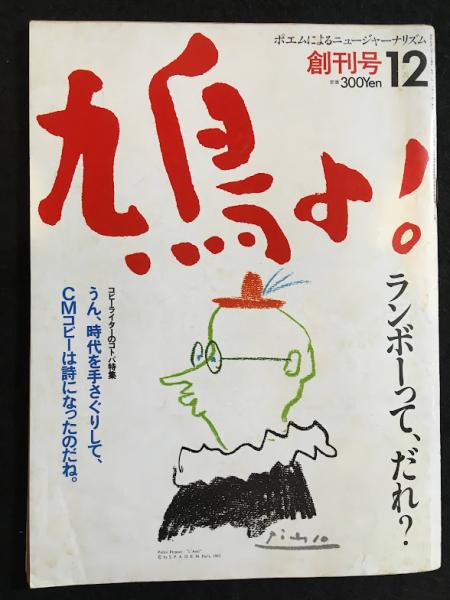 ポエムによるニュージャーナリズム
創刊号 12
定価 300Yen
鳩よ!
ランボーって、だれ?
コピーライターのコトバ特集
うん、時代を手さぐりして、
CMコピーは詩になったのだね。
Picasso
Pablo Picasso
© by S.P.A.D.E.M. Paris, 1983